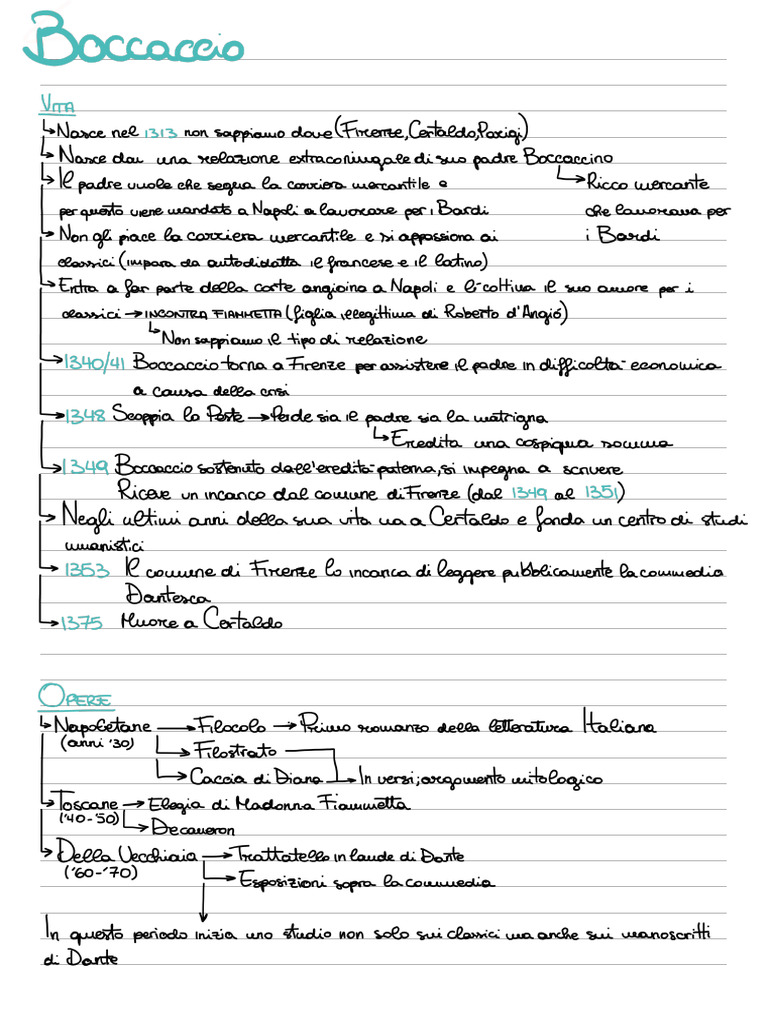 Boccaccio
VITA
Nasce nel 1313 non sappiamo dove (Firenze, Certaldo, Parigi)
Nasce dau una relazione extraconiugale di suo padre Boccaccino
Il padre vuole che segua la carriera mercantile e
Ricco mercante
per questo viene mandato a Napoli a lavorare per i Bardi
che lavorava per
Non gli piace la carriera mercantile e si appassiona ai
i Bardi
classici (impara da autodidatta il francese e il latino)
Entra a far parte della corte angioina a Napoli e lì coltiva il suo amore per i
classici → INCONTRA FIAMMETTA (figlia illegittima di Roberto d'Angiò)
Non sappiamo il tipo di relazione
1340/41 Boccaccio torna a Firenze per assistere il padre in difficoltà economica
a causa della crisi
1348 Scoppia la Peste → Perde sia il padre sia la matrigna
Eredita una cospiqua somma
1349 Boccaccio sostenuto dall'eredità paterna, si impegna a scrivere
Riceve un incarico dal comune di Firenze (dal 1349 al 1351)
Negli ultimi anni della sua vita va a Certaldo e fonda un centro di studi
umanistici
1353 Il comune di Firenze lo incarica di leggere pubblicamente la commedia
Dantesca
1375 Muore a Certaldo
OPERE
Napoletane → Filocolo → Primo romanzo della letteratura Italiana
(anni '30) Filostrato
Caccia di Diana In versi; argomento mitologico
Toscane → Elegia di Madonna Fiammetta
('40-'50) Decameron
Della Vecchiaia → Trattatello in laude di Dante
('60-'70) Esposizioni sopra la commedia
In questo periodo inizia uno studio non solo sui classici ma anche sui manoscritti
di Dante